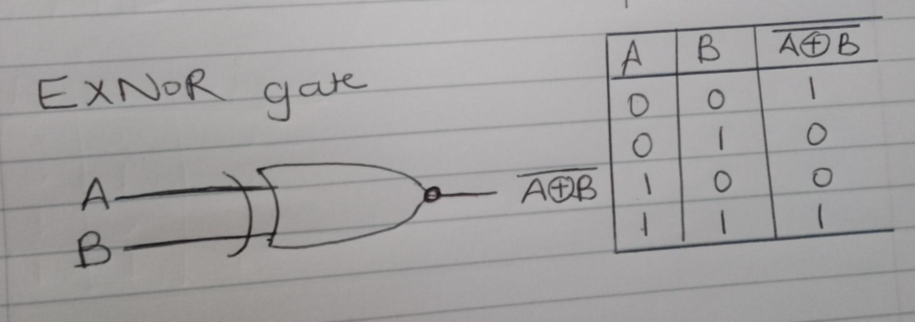 EXNOR gate
A
B
A̅⊕̅B̅
A B A̅⊕̅B̅
0 0 1
0 1 0
1 0 0
1 1 1